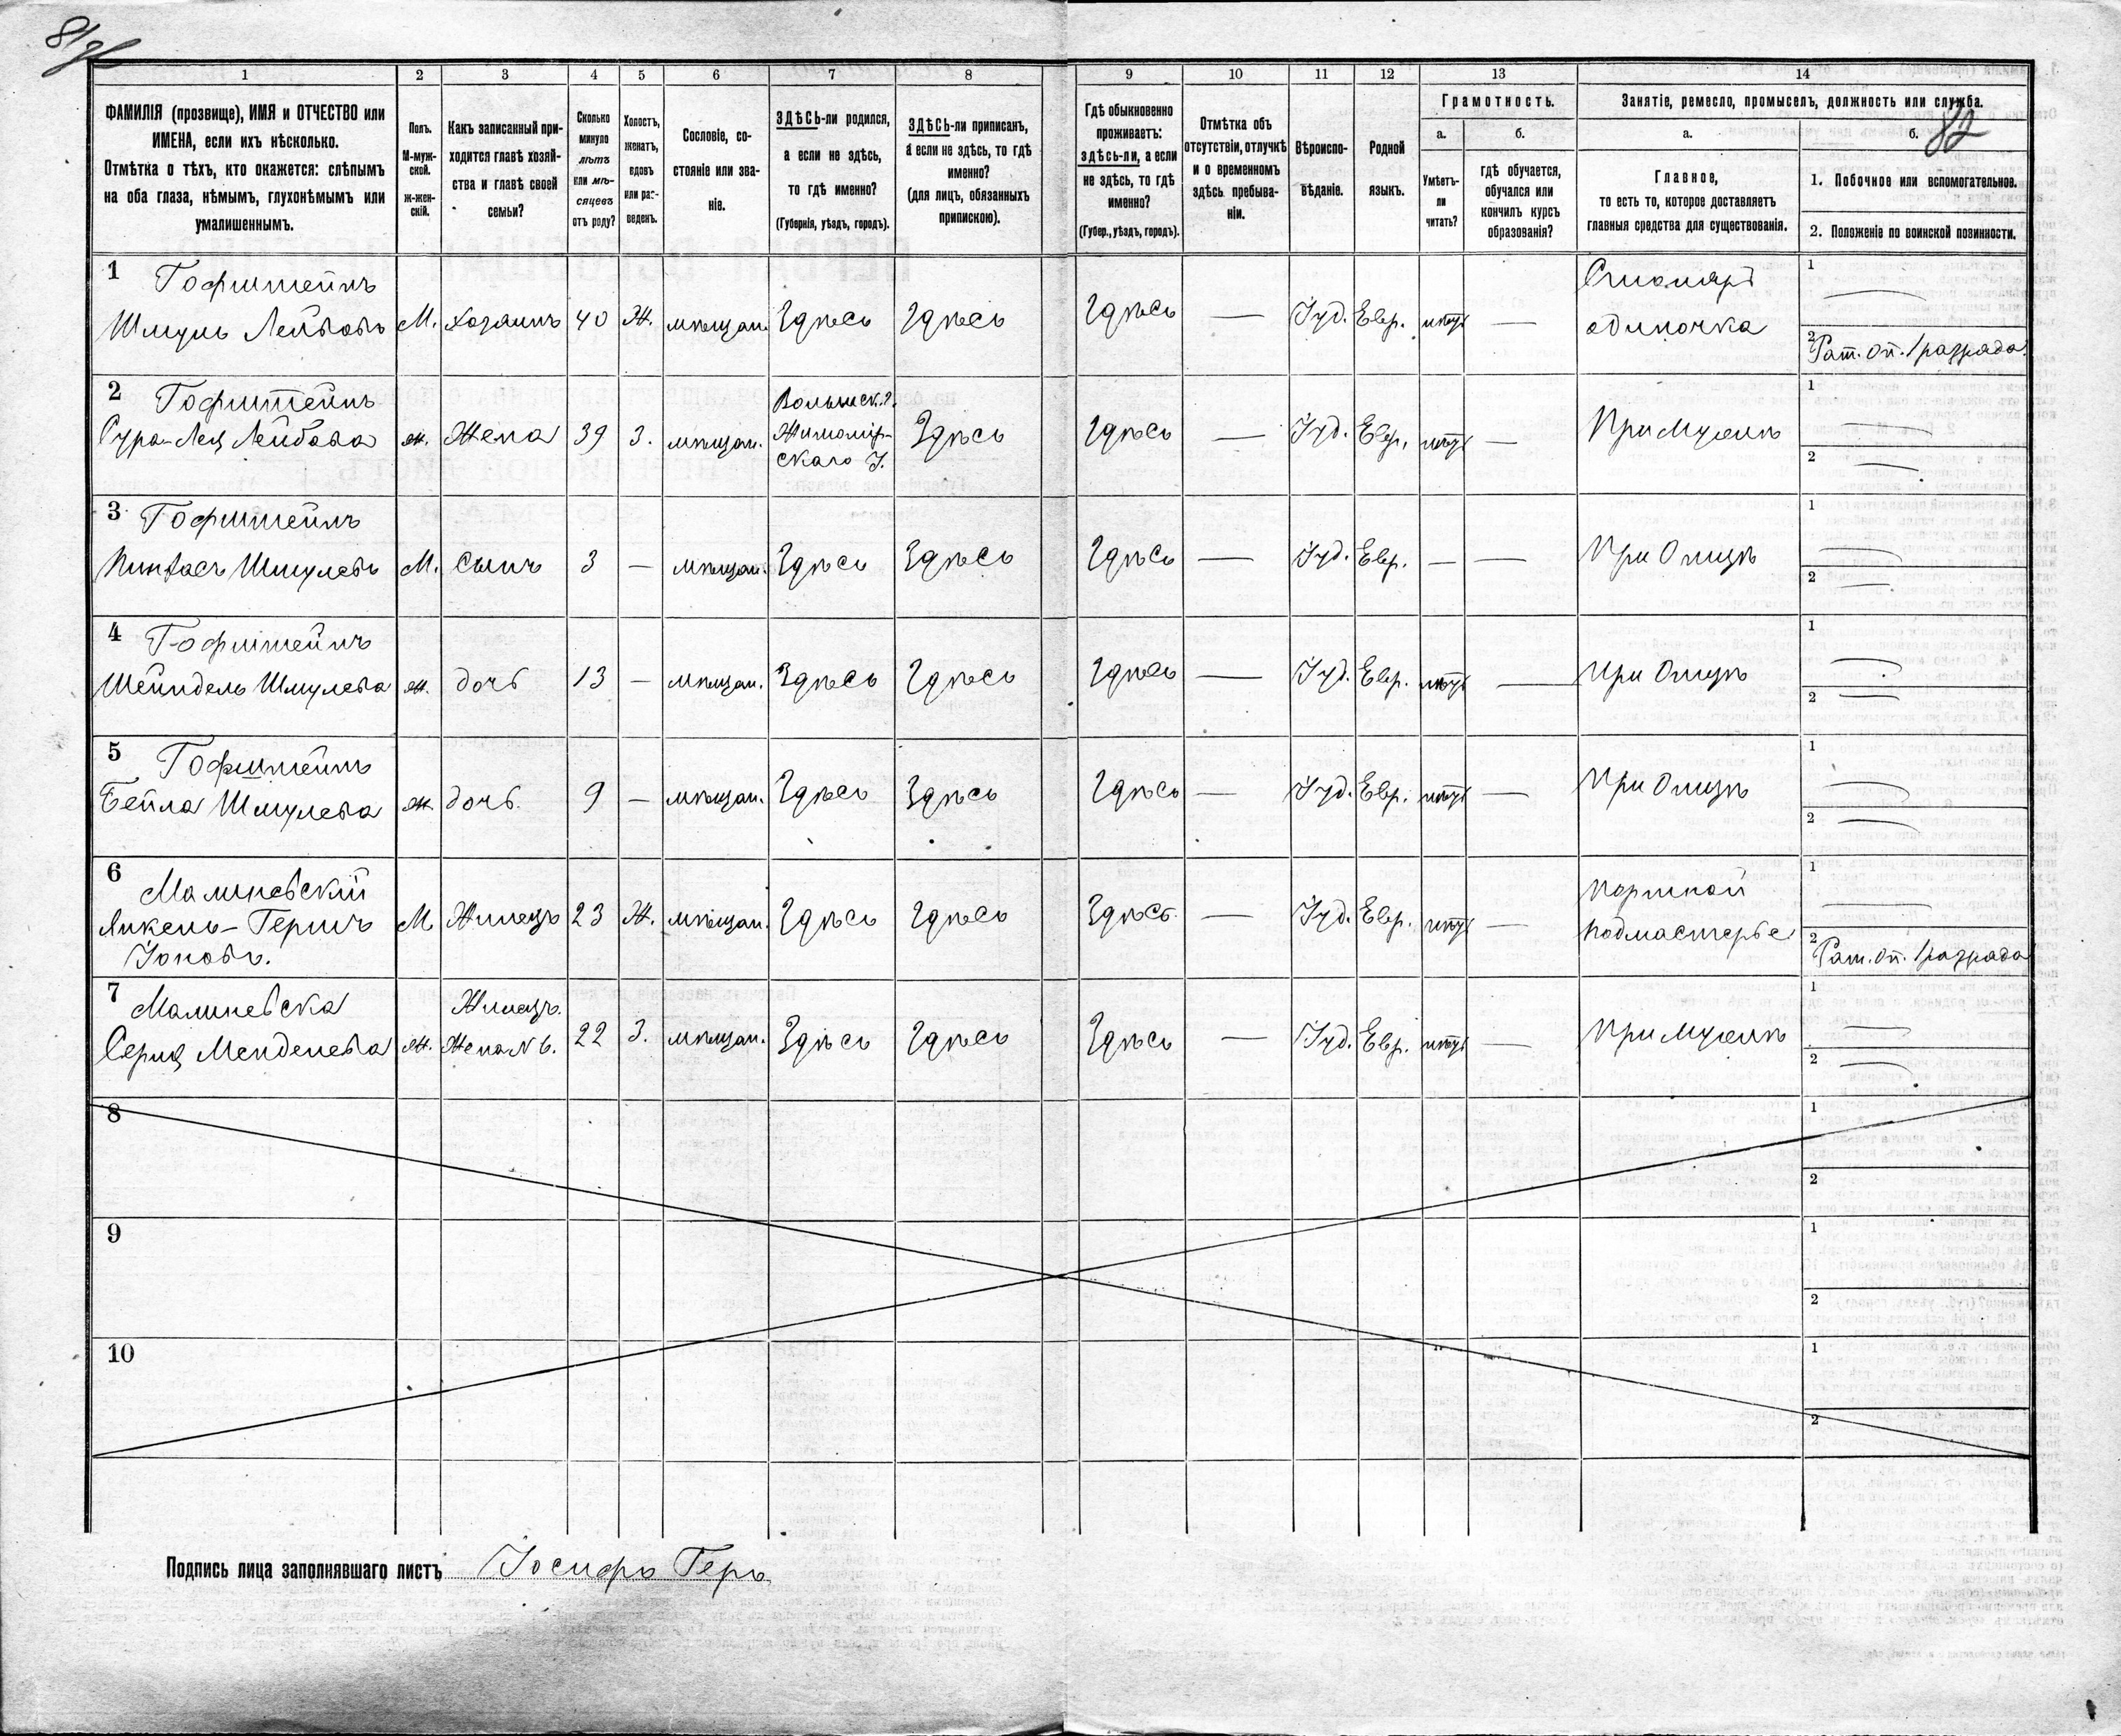 82
1 2 3 4 5 6 7 8 9 10 11 12 13 14
ФАМИЛІЯ (прозвище), ИМЯ и ОТЧЕСТВО или
ИМЕНА, если ихъ нѣсколько.
Отмѣтка о тѣхъ, кто окажется: слѣпымъ
на оба глаза, нѣмымъ, глухонѣмымъ или
умалишеннымъ.
Полъ.
М-муж-
ской.
ж-жен-
скій.
Какъ записанный при-
ходится главѣ хозяй-
ства и главѣ своей
семьи?
Сколько
минуло
лѣтъ
или мѣ-
сяцевъ
отъ роду?
Холостъ,
женатъ,
вдовъ
или раз-
веденъ.
Сословіе, со-
стояніе или зва-
ніе.
ЗДѢСЬ-ли родился,
а если не здѣсь,
то гдѣ именно?
(Губернія, уѣздъ, городъ).
ЗДѢСЬ-ли приписанъ,
а если не здѣсь, то гдѣ
именно?
(для лицъ, обязанныхъ
припискою).
Гдѣ обыкновенно
проживаетъ:
здѣсь-ли, а если
не здѣсь, то гдѣ
именно?
(Губер., уѣздъ, городъ).
Отмѣтка объ
отсутствіи, отлучкѣ
и о временномъ
здѣсь пребыва-
ніи.
Вѣроиспо-
вѣданіе.
Родной
языкъ.
Грамотность.
а.
Умѣетъ-
ли
читать?
б.
гдѣ обучается,
обучался или
кончилъ курсъ
образованія?
Занятіе, ремесло, промыселъ, должность или служба.
а.
Главное,
то есть то, которое доставляетъ
главныя средства для существованія.
б.
1. Побочное или вспомогательное.
2. Положеніе по воинской повинности.
1 Гофштейнъ
Шмуль Лейбовъ М. хозяинъ 40 Ж. мѣщан. Здѣсь Здѣсь Здѣсь — Іуд. Евр. —
Столяръ
одиночка
1 —
2 Рат. оп. 1 разряда
2 Гофштейнъ
Сура-Лея Лейбова ж. Жена 39 З. мѣщан.
Волынск. г.
Житомір-
скаго у.
Здѣсь Здѣсь — Іуд. Евр. — При Мужѣ
1 —
2 —
3 Гофштейнъ
Пинхасъ Шмулевъ М. сынъ 3 — мѣщан. Здѣсь Здѣсь Здѣсь — Іуд. Евр. — — При Отцѣ
1 —
2 —
4 Гофштейнъ
Шейндель Шмулева ж. дочь 13 — мѣщан. Здѣсь Здѣсь Здѣсь — Іуд. Евр. — При Отцѣ
1 —
2 —
5 Гофштейнъ
Бейла Шмулева ж. дочь 9 — мѣщан. Здѣсь Здѣсь Здѣсь — Іуд. Евр. — При Отцѣ
1 —
2 —
6 Малиневскій
Янкель-Гершъ М. Жилецъ 23 Ж. мѣщан. Здѣсь Здѣсь Здѣсь — Іуд. Евр. —
Іоновъ.
Портной
подмастерье
1 —
2 Рат. оп. 1 разряда
7 Малиневска
Серля Менделева ж.
Жилецъ.
Жена N 6.
22 З. мѣщан. Здѣсь Здѣсь Здѣсь — Іуд. Евр. — При Мужѣ
1 —
2 —
8
1
2
9
1
2
10
1
2
Подпись лица заполнявшаго листъ Іосифъ Геръ